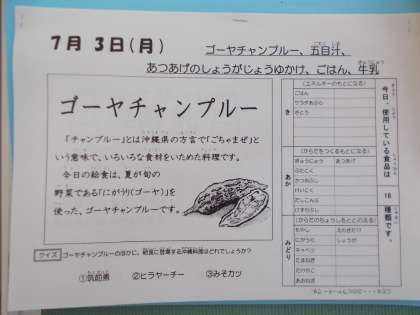 7月 3日(月)
ゴーヤチャンプルー、五目汁、
あつあげのしょうがじょうゆかけ、ごはん、牛乳
ゴーヤチャンプルー
「チャンプルー」とは沖縄県の方言で「ごちゃまぜ」と
いう意味で、いろいろな食材をいためた料理です。
今日の給食は、夏が旬の
野菜である「にがうり(ゴーヤ)」を
使った、ゴーヤチャンプルーです。
クイズ ゴーヤチャンプルーのほかに、給食に登場する沖縄料理はどれでしょうか?
①筑前煮 ②ヒラヤーチー ③みそカツ
今日、使用している食品は 18 種類です。
き
(エネルギーのもとになる)
ごはん
さとう
あか
(からだをつくるもとになる)
ぎゅうにゅう あつあげ
ぶたにく
かつおぶし
とりにく
みどり
(からだのちょうしをととのえる)
もやし えのきたけ
にがうり しょうが
キャベツ
たまねぎ
たけのこ
あおねぎ